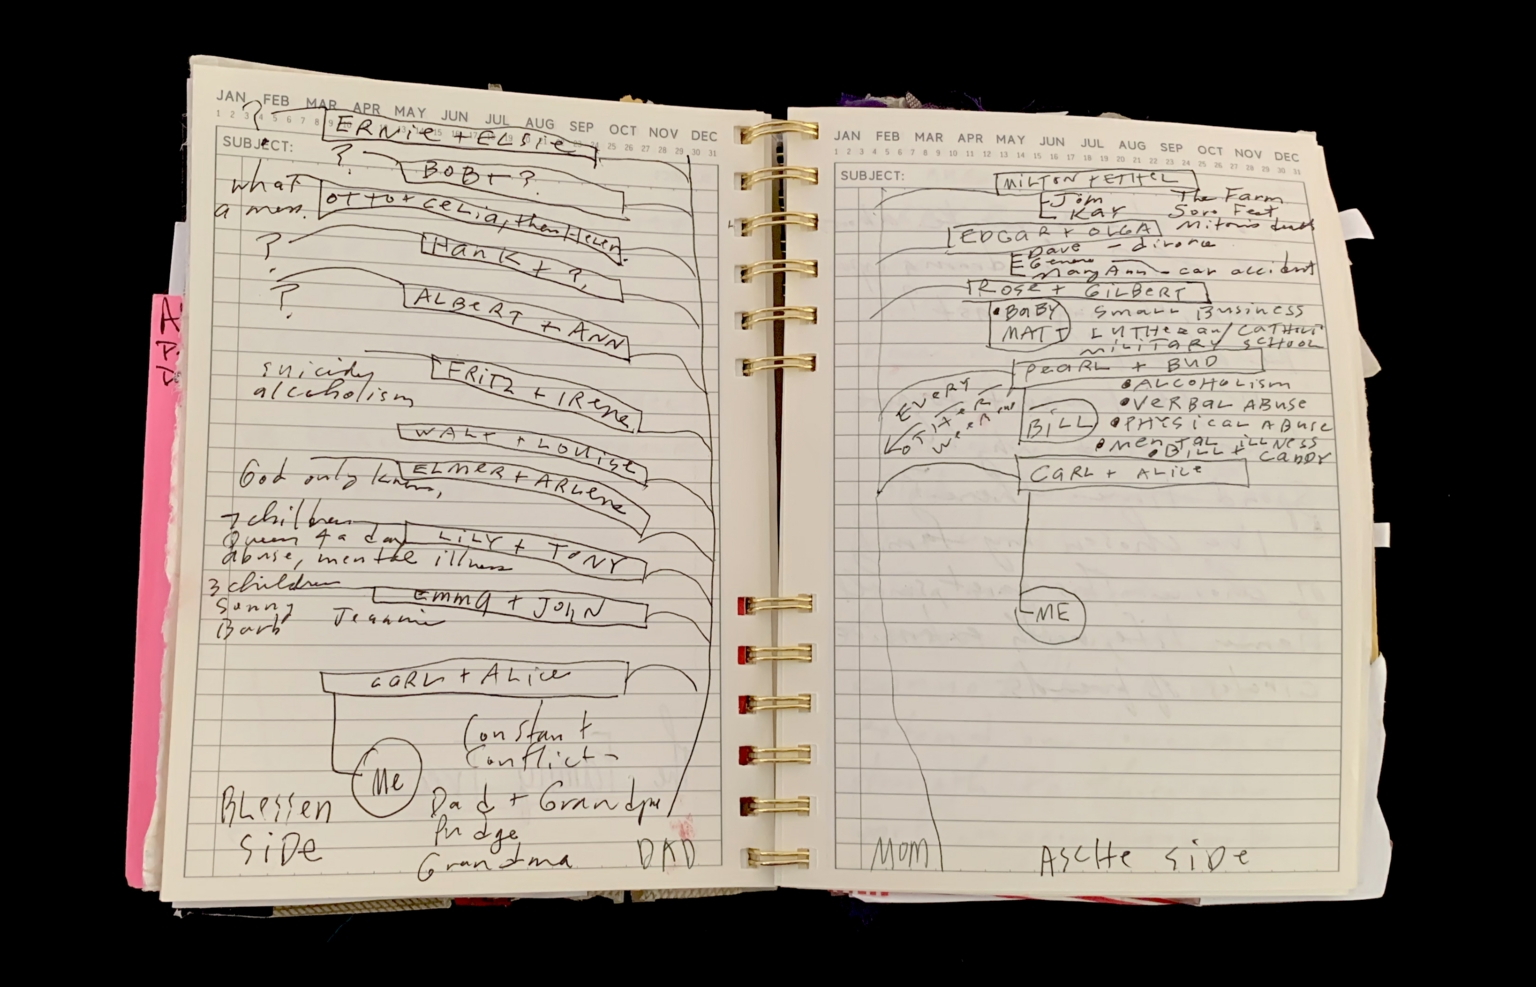 JAN FEB MAR APR MAY JUN JUL AUG SEP OCT NOV DEC
SUBJECT:
? ERNIE + ELSIE
? BOB + ?
what a mess. OTTO + CELIA, then Helen.
? HANK + ?,
? ALBERT + ANN
suicide, alcoholism FRITZ + IRENE
WALT + LOUISE
God only knows, ELMER + ARLENE
7 children LILY + TONY
Queen 4 a day
abuse, mental illness
3 children EMMA + JOHN
Sonny Jeannie
Barb
CARL + ALICE
Constant
Conflict -
Me
BLESSEN Dad + Grandpa
SIDE Pudge
Grandma DAD
JAN FEB MAR APR MAY JUN JUL AUG SEP OCT NOV DEC
1 2 3 4 5 6 7 8 9 10 11 12 13 14 15 16 17 18 19 20 21 22 23 24 25 26 27 28 29 30 31
SUBJECT:
MILTON + ETHEL
Jim The Farm
KAY Sore Feet
EDGAR + OLGA
Dave - divorce
MaryAnn - car accident
ROSE + GILBERT
BABY SMALL BUSINESS
MATT LUTHERAN/CATHOLIC
MILITARY SCHOOL
PEARL + BUD
EVERY OTHER WEEKEND
ALCOHOLISM
VERBAL ABUSE
BILL PHYSICAL ABUSE
MENTAL ILLNESS
BILL + CANDY
CARL + ALICE
ME
MOM ASCHE SIDE